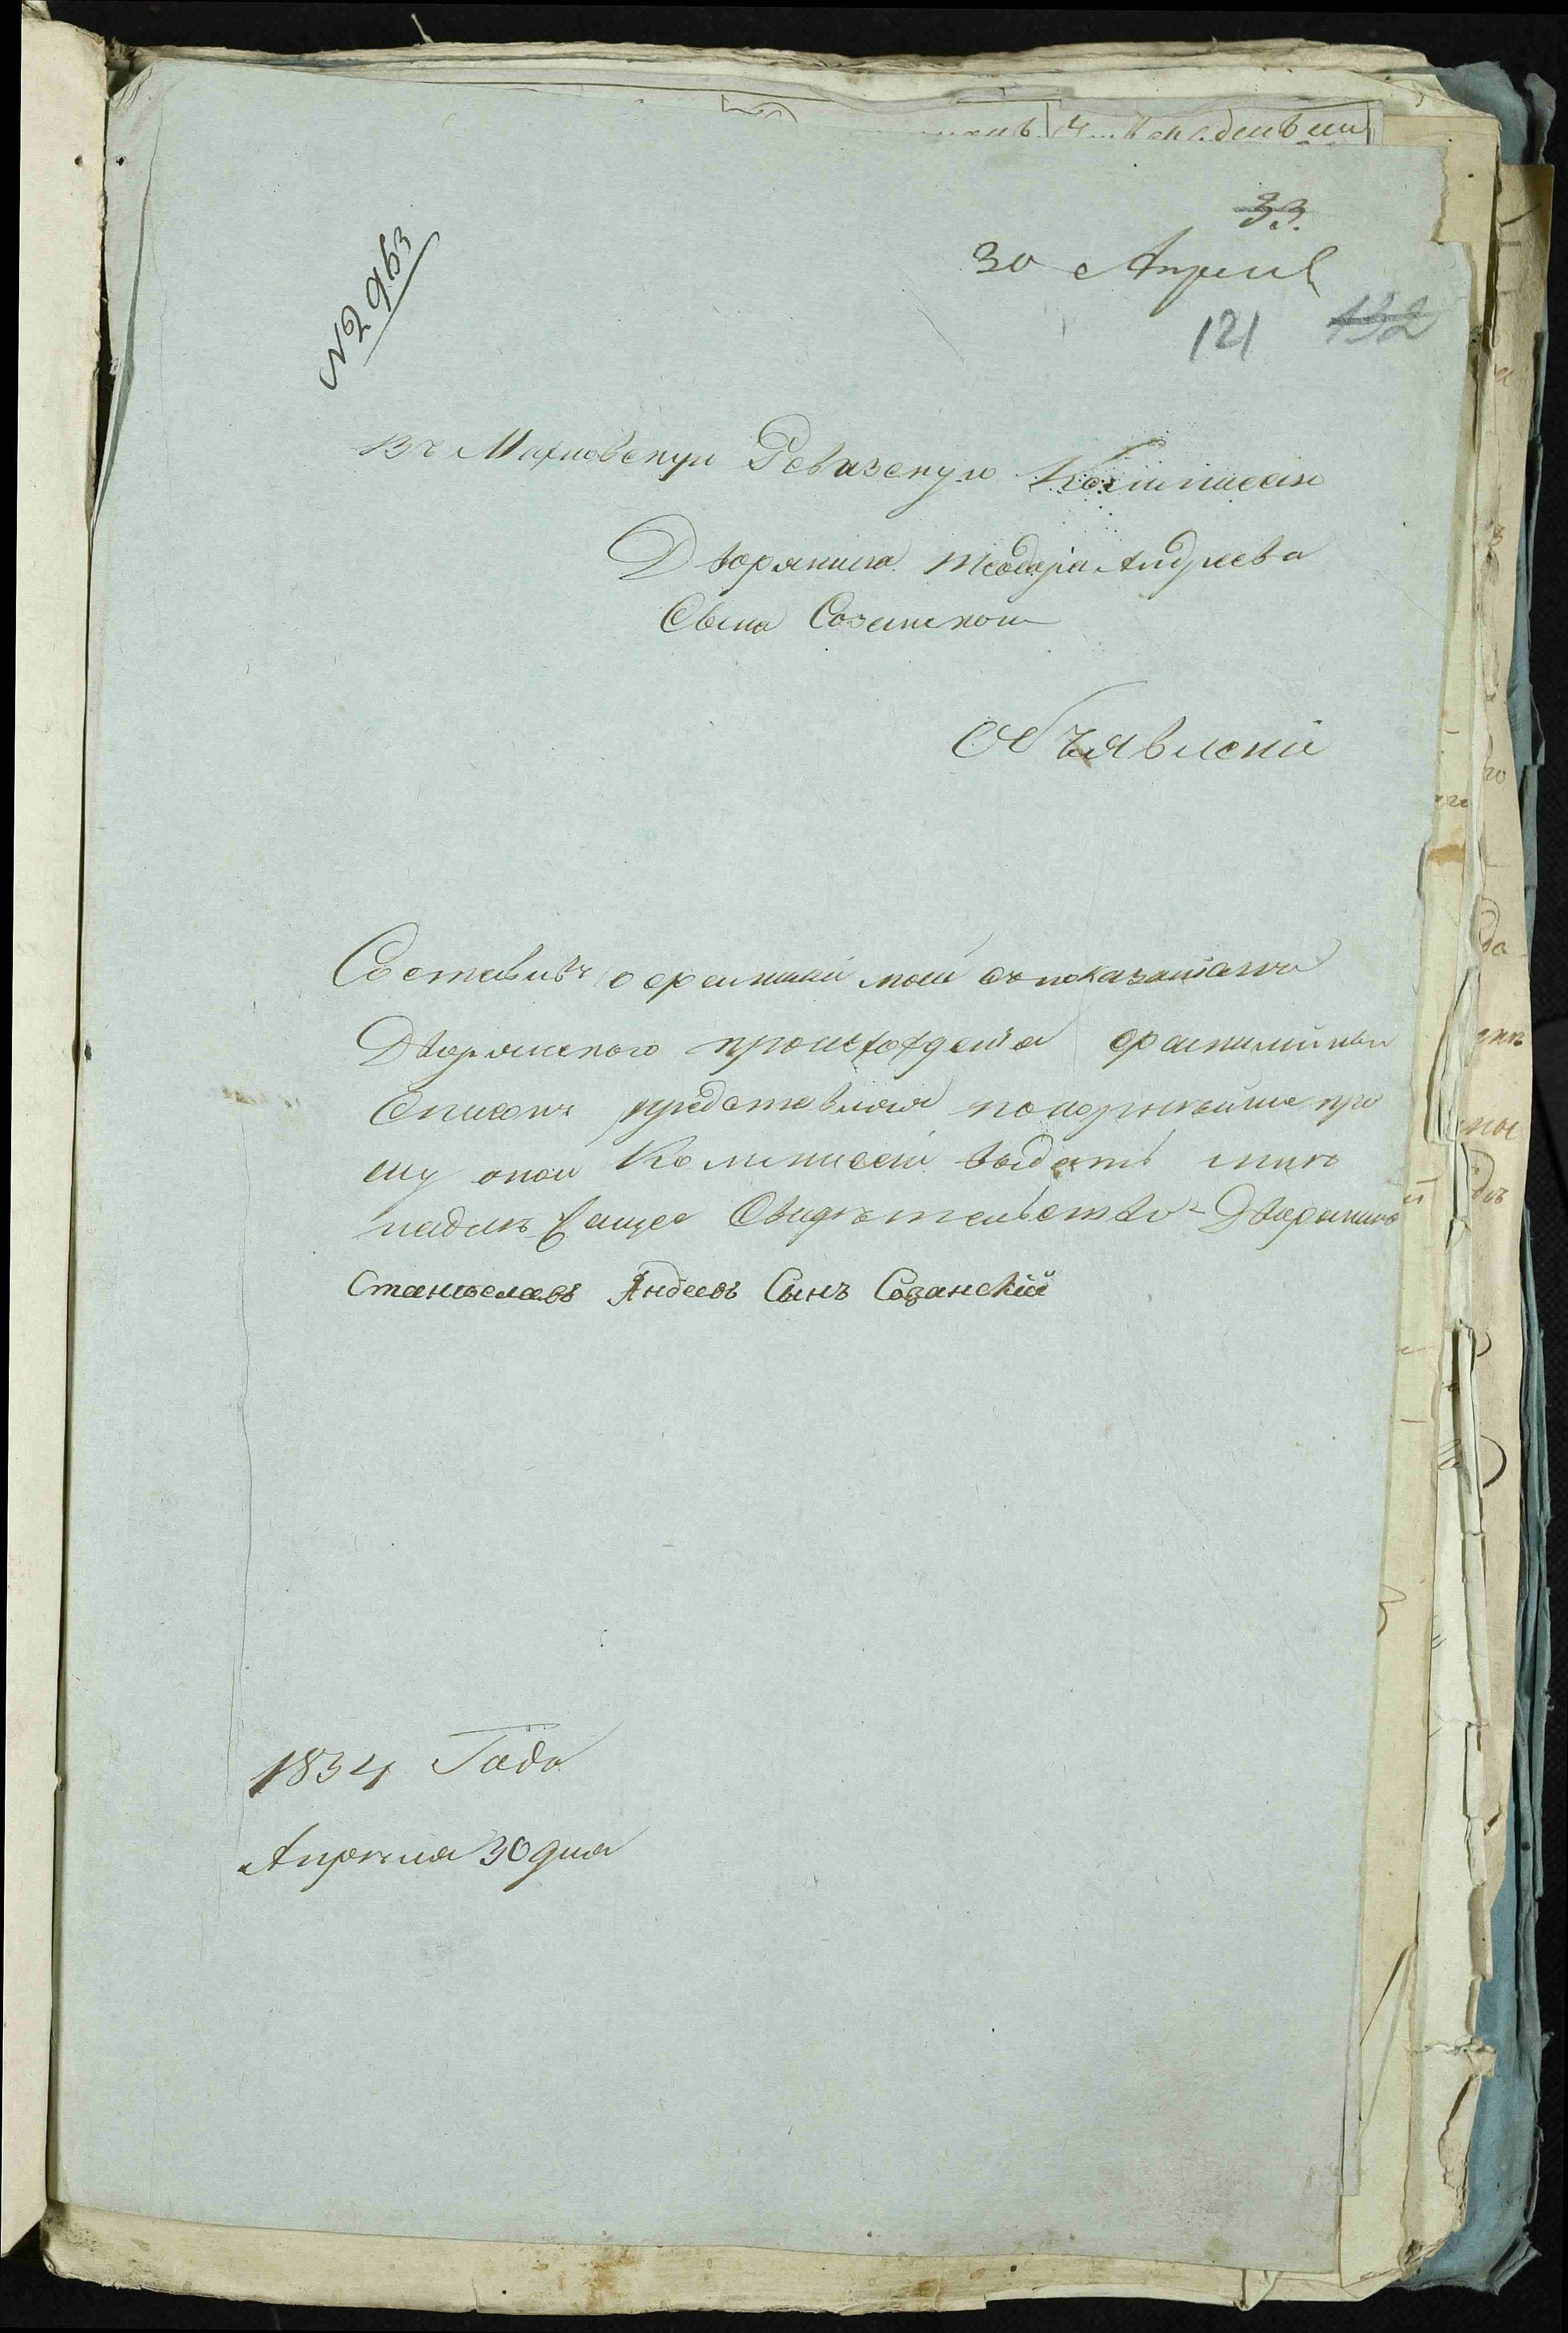 33.
30 Апреля
121 132
№ 963
Въ Махновскую Ревизскую Коммиссію
Дворянина Теодора Андреева
Сына Созанского
Объявленіе
Составивъ о фамиліи моей съ показаніемъ
Дворянского происхожденія фамилійный
Списокъ представляя покорнейше про
шу оной Коммиссіи выдать мнѣ
надлежащее Свидѣтельство - Дворянинъ
Станиславъ Андеевъ Сынъ Созанскій
1834 Года
Апрѣля 30 дня